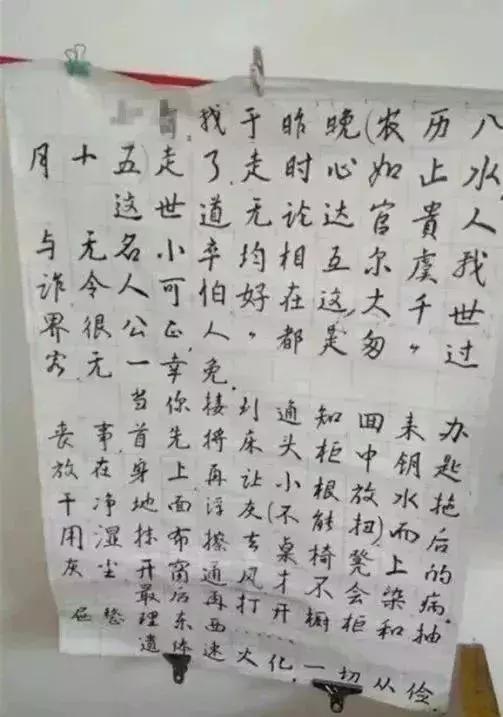 找于昨晚(农历八
月十五)走了,走时心如止水,
这世道无论达官贵人
与无名小卒均相互尔虞我
诈,令人可怕,好在这大千世
界很公正,人〃都是匆〃过
客,无一幸免.
当你接到通知回来办
丧事首先将床头柜中钥匙
放在身上再让小根放水拖
干净地面浮灰(不能扭)而后
用湿抹布擦去桌椅凳上的
灰尘开窗通风才不会染病.
最后再打开橱柜和抽
屉整理东西……
遗体速火化,一切从俭.